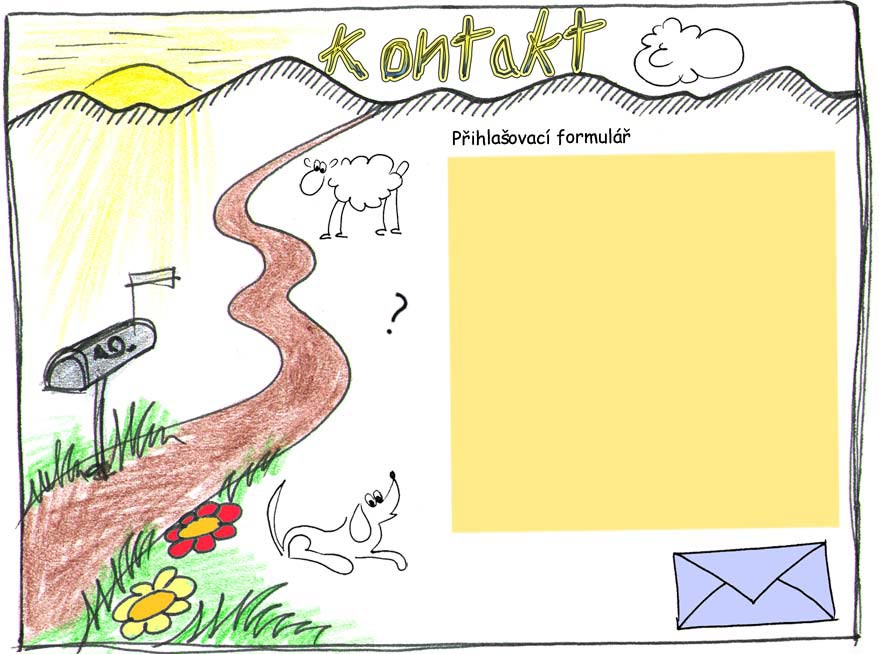 Kontakt
Přihlašovací formulář
?
10.